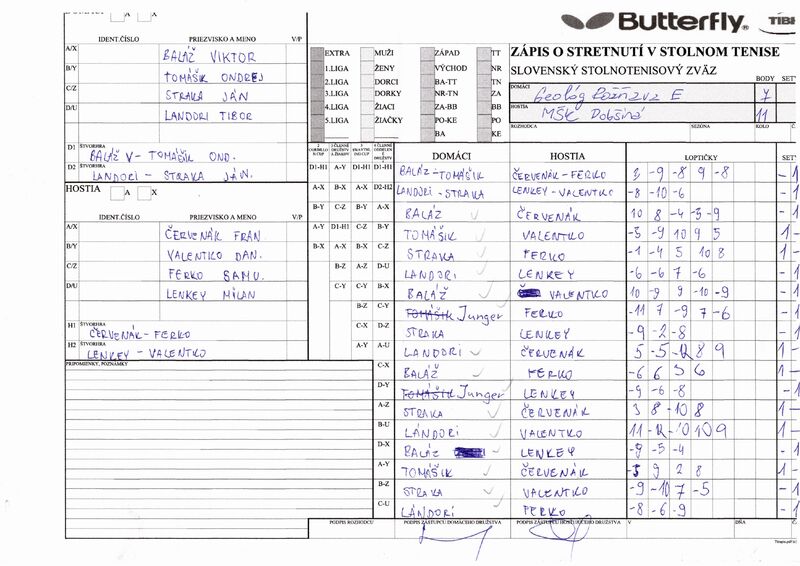 DOMÁCI A X
Butterfly TIBH
IDENT.ČÍSLO PRIEZVISKO A MENO V/P
A/X BALÁŽ VIKTOR
B/Y TOMÁŠIK ONDREJ
C/Z STRAKA JÁN
D/U LANDORI TIBOR
D1 ŠTVORHRA BALÁŽ V- TOMÁŠIK OND.
D2 ŠTVORHRA LANDORI - STRAKA JÁN.
EXTRA MUŽI ZÁPAD TT
1.LIGA ŽENY VÝCHOD NR
2.LIGA DORCI BA-TT TN
3.LIGA DORKY NR-TN ZA
4.LIGA ŽIACI ZA-BB BB
5.LIGA ŽIAČKY PO-KE PO
BA KE
ZÁPIS O STRETNUTÍ V STOLNOM TENISE
SLOVENSKÝ STOLNOTENISOVÝ ZVÄZ
BODY SETY
DOMÁCI Geológ Rožňava E 7
HOSTIA MŠK Dobšiná 11
ROZHODCA SEZONA KOLO
HOSTIA A X
IDENT.ČÍSLO PRIEZVISKO A MENO V/P
A/X ČERVENÁK FRAN
B/Y VALENTKO DAN.
C/Z FERKO SAMU.
D/U LENKEY MILAN
H1 ŠTVORHRA ČERVENÁK- FERKO
H2 ŠTVORHRA LENKEY - VALENTKO
PRIPOMIENKY, POZNÁMKY
DOMÁCI HOSTIA LOPTIČKY SETY
D1-H1 A-Y D1-H1 D1-H1 BALÁŽ-TOMÁŠIK ČERVENÁK - FERKO 3 -9 -8 9 -8
A-X B-X A-X D2-H2 LANDORI-STRAKA LENKEY-VALENTKO -8 -10 -6
B-Y C-Z B-Y A-X BALÁŽ ČERVENÁK 10 8 -4 -3 -9
A-Y D1-H1 C-Z B-Y TOMÁŠIK VALENTKO -3 -9 10 9 5
B-X A-X B-X C-Z STRAKA FERKO -1 -4 5 10 8
B-Z A-Z D-U LANDORI LENKEY -6 -6 7 -6
C-Y C-Y B-X BALÁŽ VALENTKO 10 -9 9 -10 -9
B-Z C-Y Junger FERKO -11 7 -9 7 -6
C-X D-Z STRAKA LENKEY -9 -2 -8
A-Y A-U LANDORI ČERVENÁK 5 -5 -12 8 9
C-X BALÁŽ FERKO -6 6 5 6
D-Y Junger LENKEY -9 -6 -8
A-Z STRAKA ČERVENÁK 3 8 -10 8
B-U LÁNDORI VALENTKO 11 -12 -10 10 9
D-X BALÁŽ LENKEY -9 -5 -4
A-Y TOMÁŠIK ČERVENÁK -5 9 2 8
B-Z STRAKA VALENTKO -9 -10 7 -5
C-U LÁNDORI FERKO -8 -6 -9
PODPIS ROZHODCU PODPIS ZÁSTUPCU DOMÁCEHO DRUŽSTVA PODPIS ZÁSTUPCU HOSŤUJÚCEHO DRUŽSTVA V DŇA